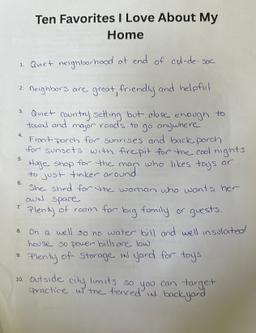 Ten Favorites I Love About My
Home
1. Quiet neighborhood at end of cul-de-sac
2. Neighbors are great, friendly and helpful
3. Quiet country setting but close enough to
town and major roads to go anywhere
4. Front porch for sunrises and back porch
for sunsets with firepit for the cool nights
5. Huge shop for the man who likes toys or
to just tinker around
6. She shed for the woman who wants her
own space
7. Plenty of room for big family or guests.
8. On a well so no water bill and well insulated
house so power bills are low
9. Plenty of Storage in yard for toys
10. Outside city limits so you can target
practice in the fenced in backyard